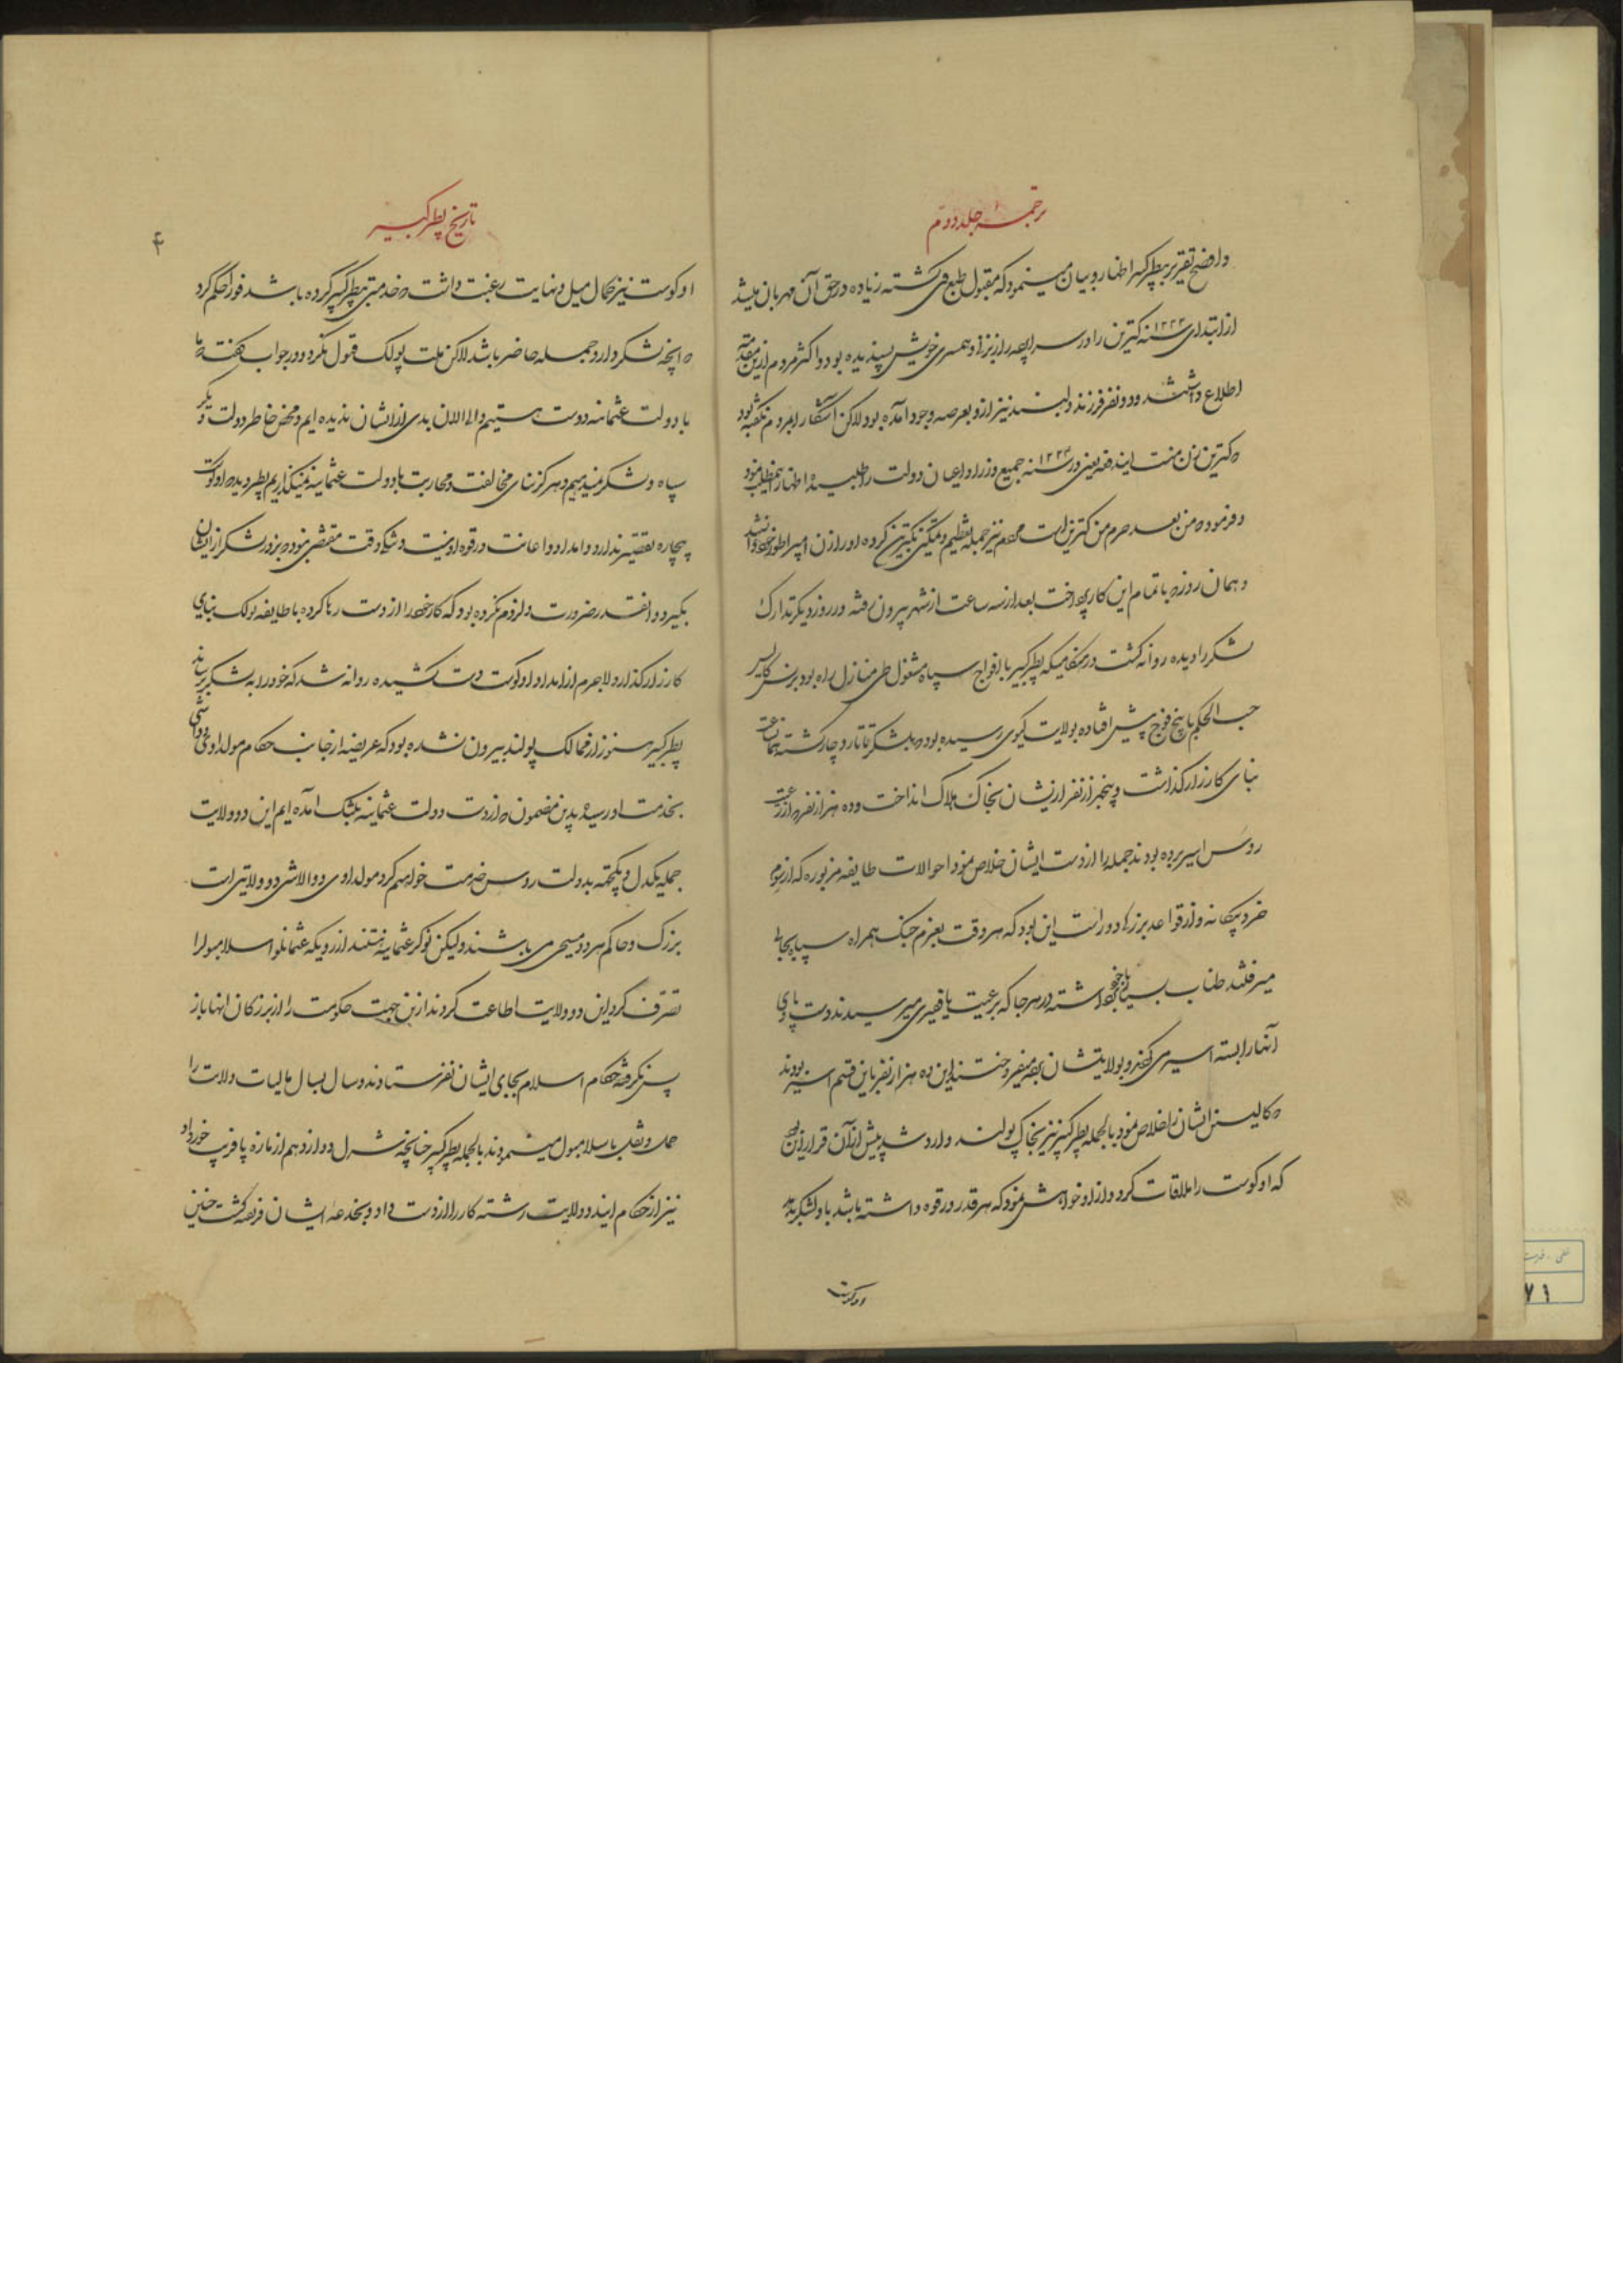 ترجمه جلد دوم
و افصح تقریر بپطر کبیر اظهار و بیان مینمود که مقبول طبع وی کشته زیاده در حق آن مهربان میشد
از ابتدای سنه ۱۲۲۳ کترین را در سر بزنی و همسری خویش پسندیده بود و اکثر مردم ازین مقدمه
اطلاع داشتند و دو نفر فرزند دلبند نیز ازو بعرصه وجود آمده بود لاکن آشکارا بمردم نکفته بود
که کترین زن منست ایندفعه یعنی در سنه ۱۲۲۳ جمیع وزرا و اعیان دولت را طلبیده اظهار اینمطلب نمود
و فرمود که من بعد حرم من کترین است مردم نیز جمله تعظیم و تمکین بکترین کرده او را زن امپراطور خود دانستند
و همان روز که باتمام این کار پرداخت بعد از سه ساعت از شهر بیرون رفته و در روز دیکر تدارک
لشکر را دیده روانه کشت در هنکامیکه پطر کبیر با افواج سپاه مشغول طی منازل راه بود پرنس کالیس
حسب الحکم با پنج فوج پیش افتاده بولایت کیوی رسیده بود که بلشکر تاتار دچار کشته همان ساعت
بنای کارزار کذاشت و پنجهزار نفر ازیشان بخاک هلاک انداخت و ده هزار نفر که از رعیت
روس اسیر برده بودند جمله را از دست ایشان خلاص نمود احوالات طایفه مزبوره که از رسوم
خرد بیکانه و از قواعد بزرکی دور است این بود که هر وقت بعزم جنک همراه سپاه بجائی
میرفتند طناب بسیار با خود برداشته در هر جا که برعیت یا فقیری میرسیدند دست و پای
آنها را بسته اسیر می کردند و بولایتشان برده میفروختند این ده هزار نفر باین قسم اسیر بودند
که کالیس ایشان را خلاص نمود بالجمله پطر کبیر نیز بخاک پولند وارد شد پیش از آن قرار این بود
که اوکوست را ملاقات کرده و ازو خواهش نمود که هر قدر در قوه داشته باشد باو لشکر بدهد
اوکوست
تاریخ پطر کبیر
۴
اوکوست نیز بکمال میل و نهایت رغبت داشت که خدمتی بپطر کبیر کرده باشد فورا حکم کرد
که آنچه لشکر دارد جمله حاضر باشد لاکن ملت پولک قبول نکرد و در جواب کفتند که ما
با دولت عثمانیه دوست هستیم و الی الان بدی از ایشان ندیده ایم و محض خاطر دولت دیکر
سپاه و لشکر نمیدهیم و هرکز بنای مخالفت و محاربت با دولت عثمانیه نمیکذاریم پطر دید که اوکوست
بیچاره تقصیر ندارد و امداد و اعانت در قوه او نیست و وقت مقتضی نبود که بزور لشکر از ایشان
بکیرد و آنقدر ضرورت و لزوم نکرده بود که کار خود را از دست رها کرده با طایفه پولک بنای
کارزار کذارد لاجرم از امداد اوکوست دست کشیده روانه شد که خود را به لشکر برساند
پطر کبیر هنوز از ممالک پولند بیرون نشده بود که عریضه از جانب حکام مولداوی و والاشی
بخدمت او رسید بدین مضمون که از دست دولت عثمانیه بتنک آمده ایم این دو ولایت
جمله یکدل و یکجهته بدولت روس خدمت خواهیم کرد مولداوی و والاشی دو ولایتی است
بزرک و حاکم هر دو مسیحی می باشند و لیکن نوکر عثمانیه هستند از روزیکه عثمانلو اسلامبولرا
تصرف کرد این دو ولایت اطاعت کردند ازین جهت حکومت را از بزرکان آنها باز
پس نکرفته حکام اسلام بجای ایشان نفرستادند و سال بسال مالیات ولایت را
حمل و نقل باسلامبول مینمودند بالجمله پطر کبیر چنانچه شرل دوازدهم از مازه پا فریب خورد او
نیز از حکام ایندو ولایت رشته کار را از دست داد و بخدعه ایشان فریفته کشت چنین
نفی
۷۱